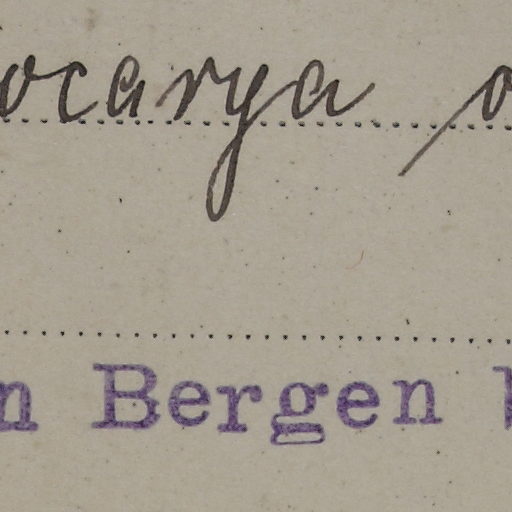 ocarya
n Bergen